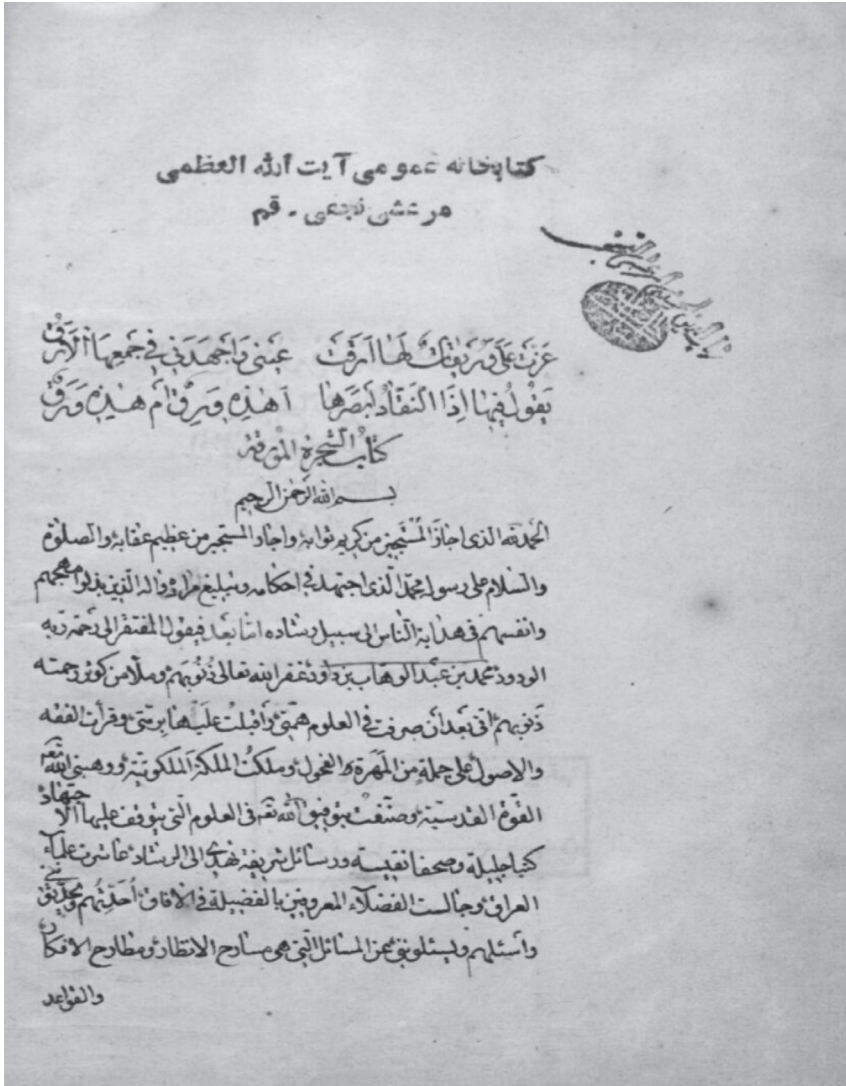 كتابخانه عمومی آیت الله العظمی
مرعشی نجفی - قم
عزت على لها ارقت عینی واجهدنی فی جمعها الارق
یقول فیها اذا النقاد ابصرها أهذه ورق ام هذه ورق
كتاب الشجرة المورقة
بسم الله الرحمن الرحیم
الحمد لله الذی اجاز المستجیز من كریم ثوابه واجار المستجیر من عظیم عقابه والصلوة
والسلام على رسوله محمد الذی اجتهد فی احكامه وتبلیغ مراده واله الذین بذلوا مهجهم
وانفسهم فی هدایة الناس الى سبیل رشاده اما بعد فیقول المفتقر الى رحمة ربه
الودود محمد بن عبد الوهاب بن داود غفر الله تعالى ذنوبهم وملأ من كوثر رحمته
ذنوبهم انی بعد أن صرفت فی العلوم همتی واقبلت علیها برمتی وقرأت الفقه
والاصول على جملة من المهرة الفحول وملكت الملكة الملكوتیة ووهبنی الله تعه
القوة القدسیة وصنفت بتوفیق الله تعه فی العلوم التی یتوقف علیها الاجتهاد
كتبا جلیلة وصحفا نفیسة ورسائل شریفة تهدی الى الرشاد عاشرت علماء
العراق وجالست الفضلاء المعروفین بالفضیلة فی الافاق أحدثهم
واسئلهم ویسئلوننی عن المسائل التی هی مسارح الانظار ومطارح الافكار
والقواعد